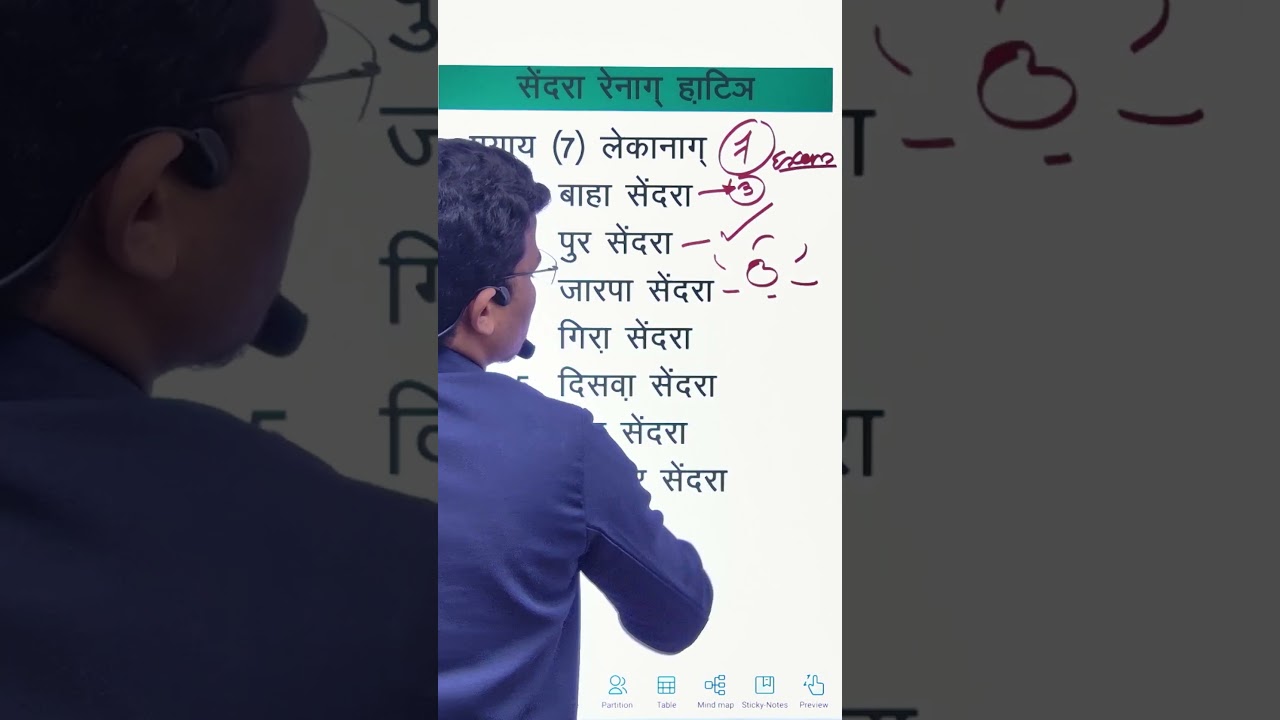 सेंदरा रेनाग् हा़टिञ
(7) लेकानाग् 7 Exam
बाहा सेंदरा 3
पुर सेंदरा
जारपा सेंदरा
गिरा़ सेंदरा
5 दिसवा़ सेंदरा
सेंदरा
सेंदरा
Partition Table Mind map Sticky-Notes Preview